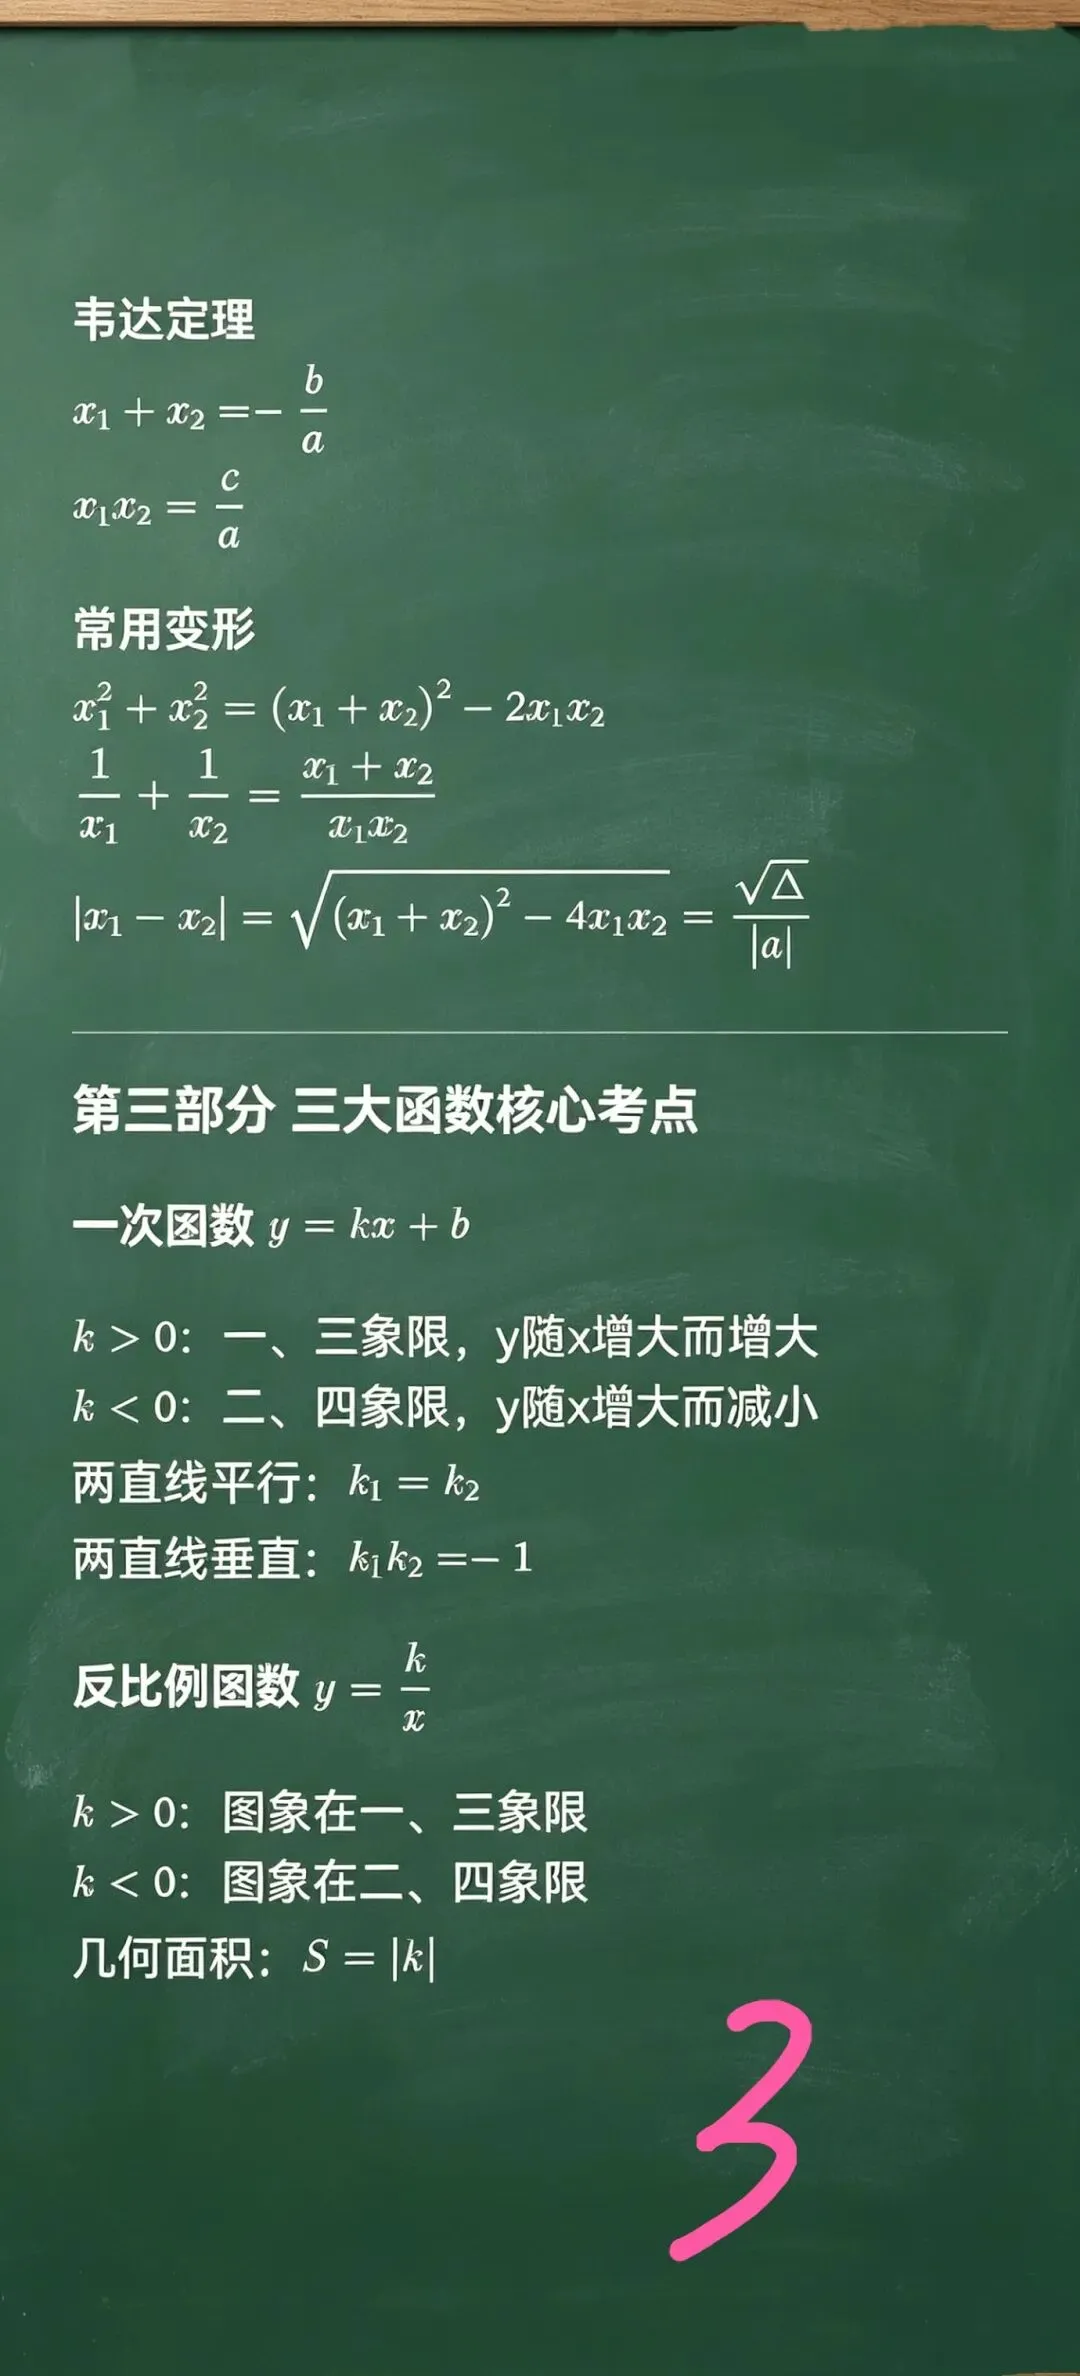 韦达定理
x₁ + x₂ =− b/a
x₁x₂ = c/a
常用变形
x₁² + x₂² = (x₁ + x₂)² − 2x₁x₂
1/x₁ + 1/x₂ = (x₁ + x₂)/(x₁x₂)
|x₁ − x₂| = √((x₁ + x₂)² − 4x₁x₂) = √Δ/|a|
第三部分 三大函数核心考点
一次函数 y = kx + b
k > 0：一、三象限，y随x增大而增大
k < 0：二、四象限，y随x增大而减小
两直线平行：k₁ = k₂
两直线垂直：k₁k₂ =− 1
反比例函数 y = k/x
k > 0：图象在一、三象限
k < 0：图象在二、四象限
几何面积：S = |k|
3